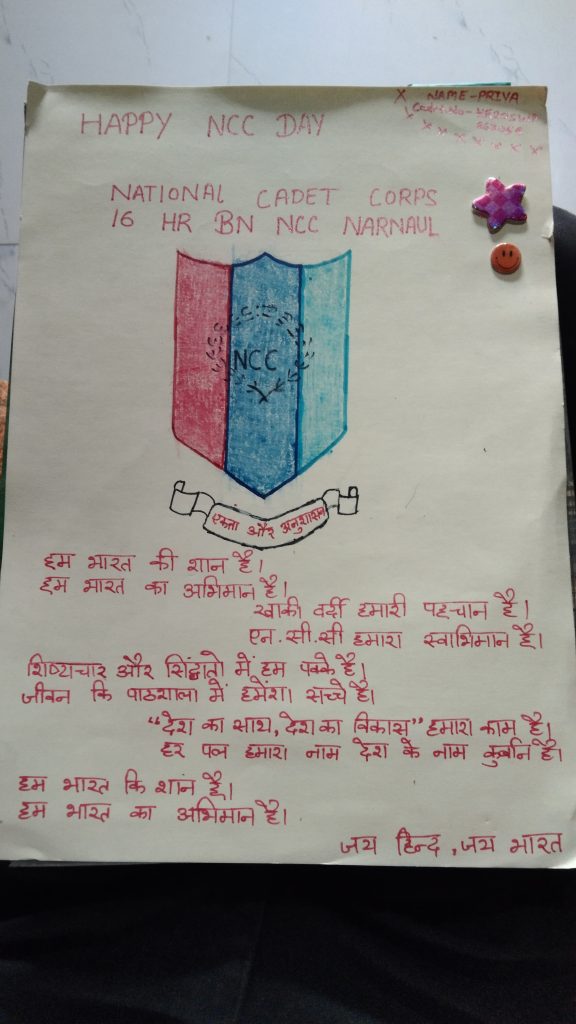 NAME-PRIYA
HAPPY NCC DAY
NATIONAL CADET CORPS
16 HR BN NCC NARNAUL
NCC
एकता और अनुशासन
हम भारत की शान है।
हम भारत का अभिमान है।
खाकी वर्दी हमारी पहचान है।
एन.सी.सी हमारा स्वाभिमान है।
शिष्याचार और सिंद्वातो में हम पक्के है।
जीवन कि पाठशाला में हमेंशा सच्चे है।
"देश का साथ, देश का विकास" हमारा काम है।
हर पल हमारा नाम देश के नाम कुर्बान है।
हम भारत कि शान है।
हम भारत का अभिमान है।
जय हिन्द, जय भारत